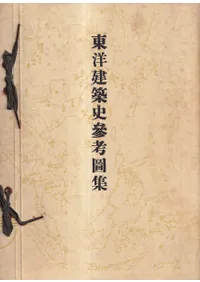 東洋建築史參考圖集